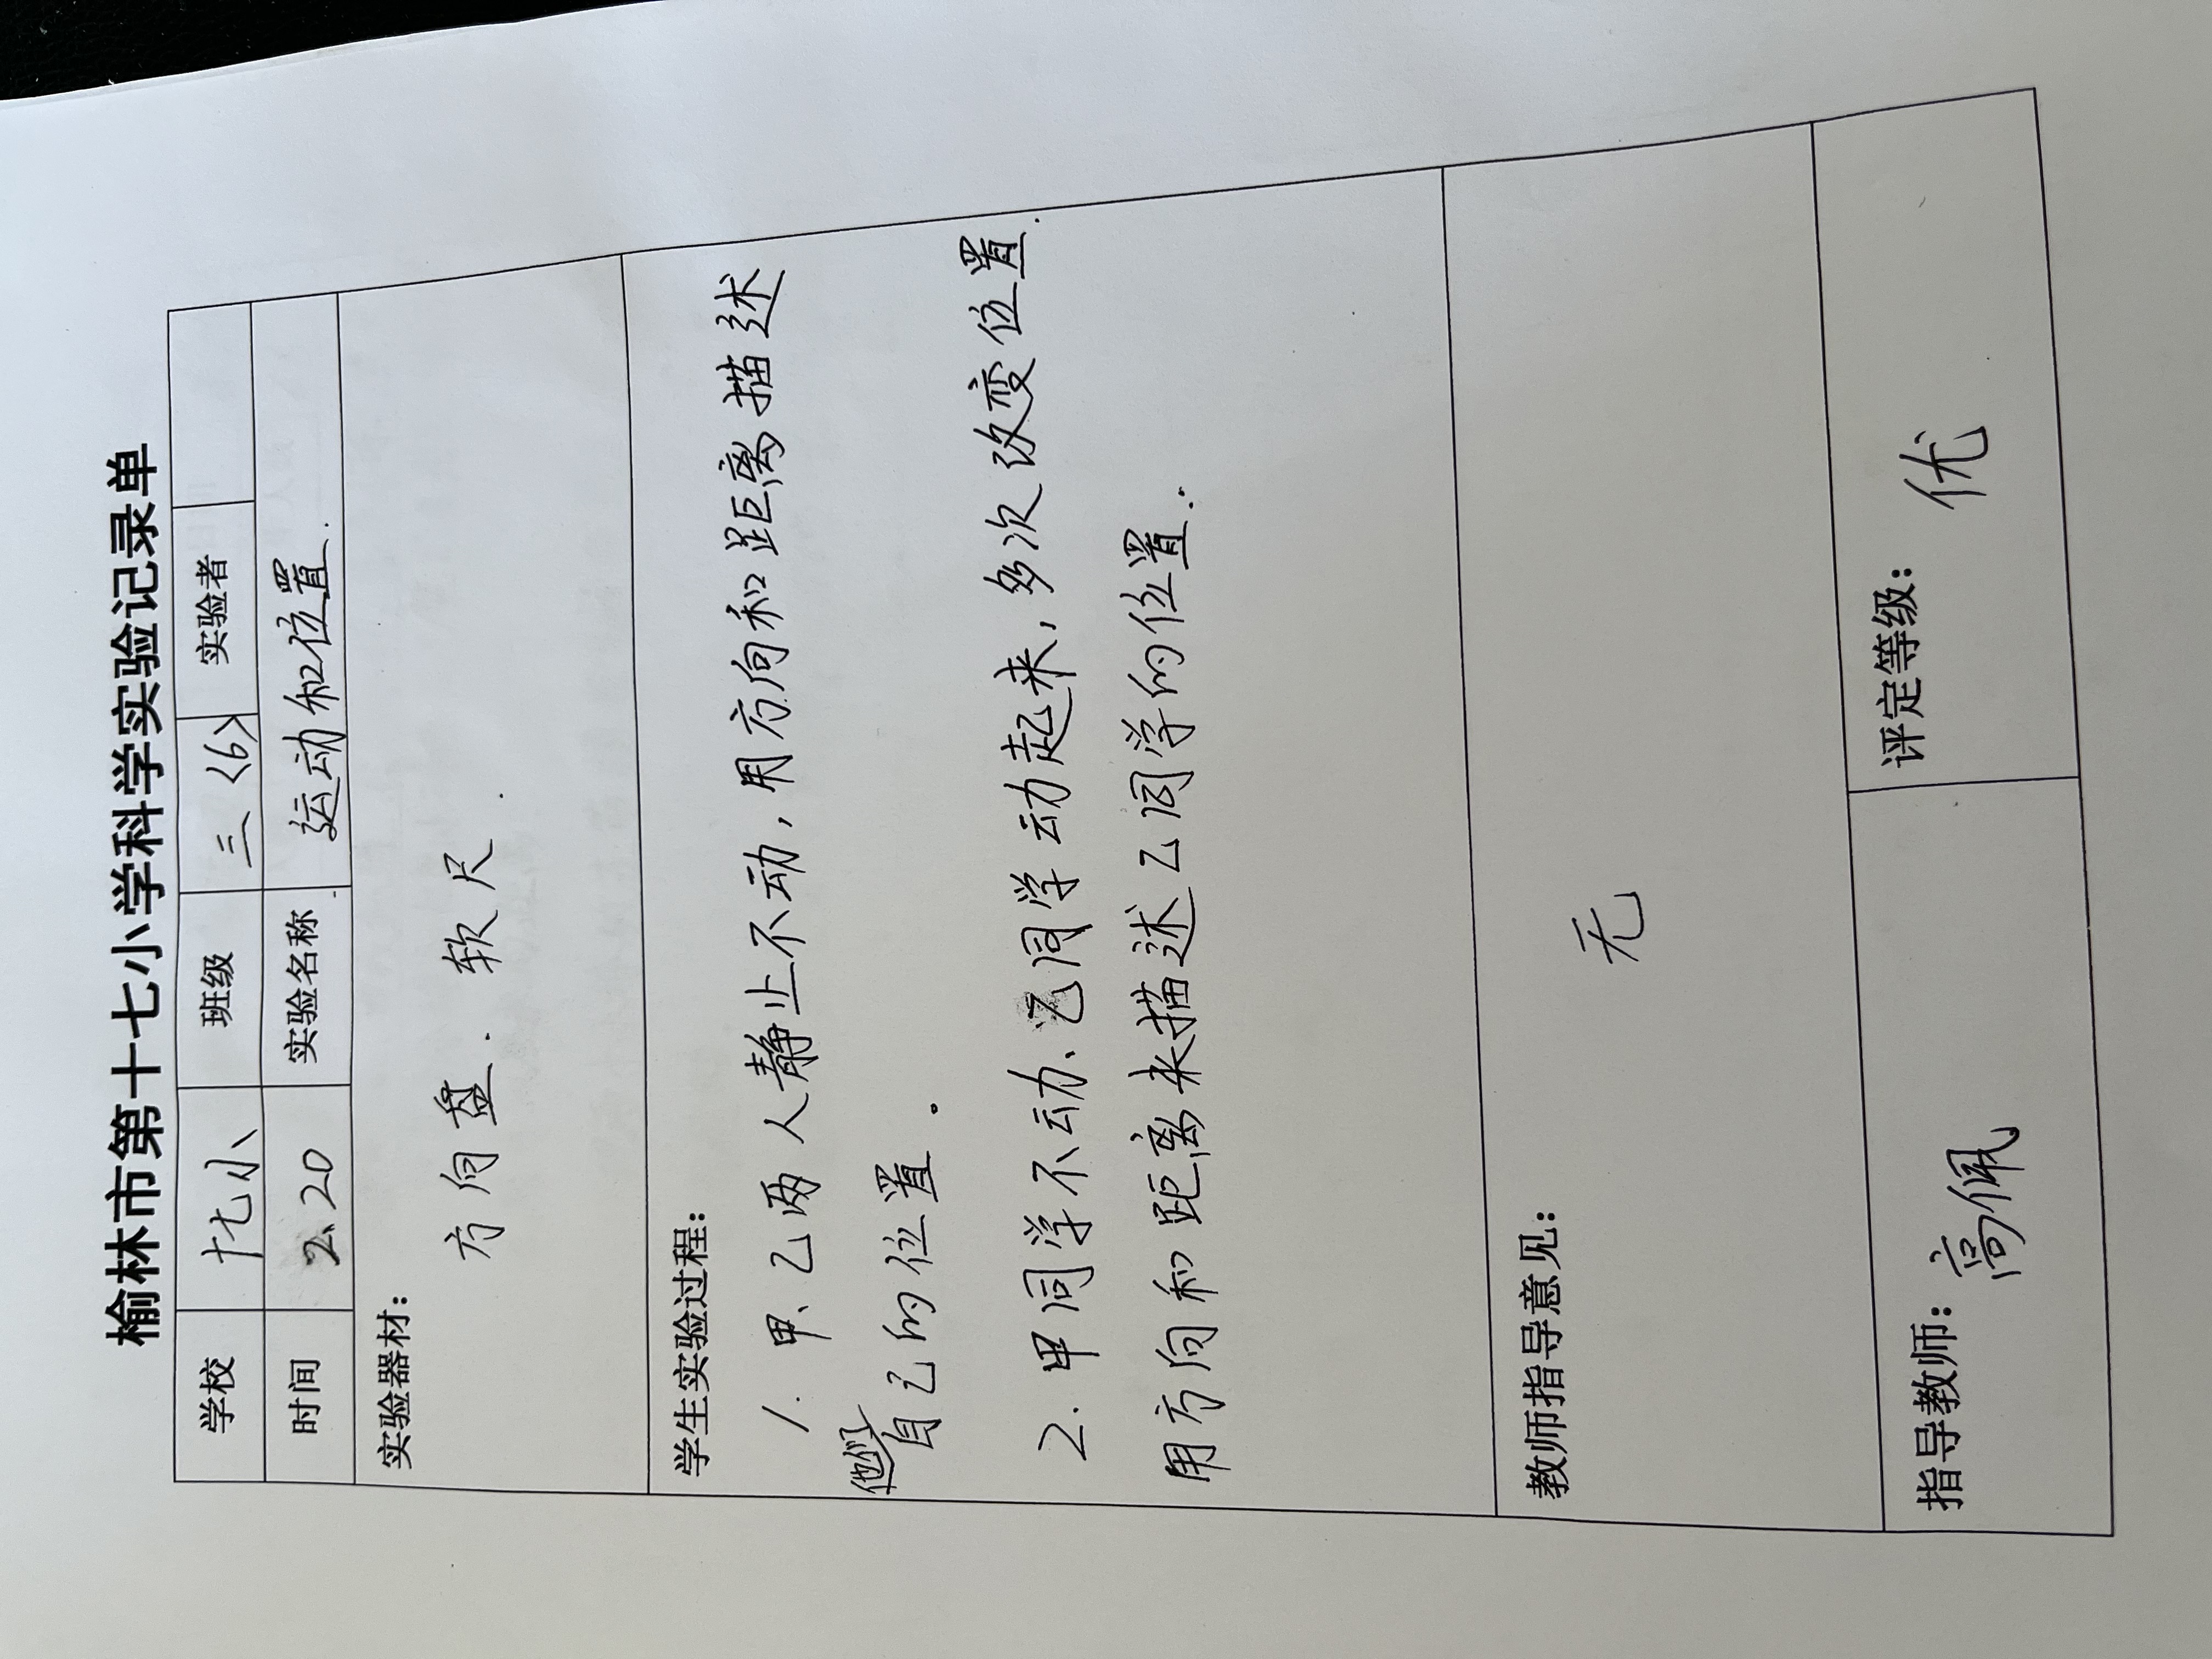 榆林市第十七小学科学实验记录单
学校 十七小 班级 三〈6〉 实验者
时间 2.20 实验名称 运动和位置.
实验器材：
方向盘. 软尺.
学生实验过程：
1. 甲、乙两人静止不动, 用方向和距离描述
他们自己的位置.
2. 甲同学不动、乙同学动起来, 多次改变位置.
用方向和距离来描述乙同学的位置.
教师指导意见：
无
指导教师： 高佩 评定等级： 优